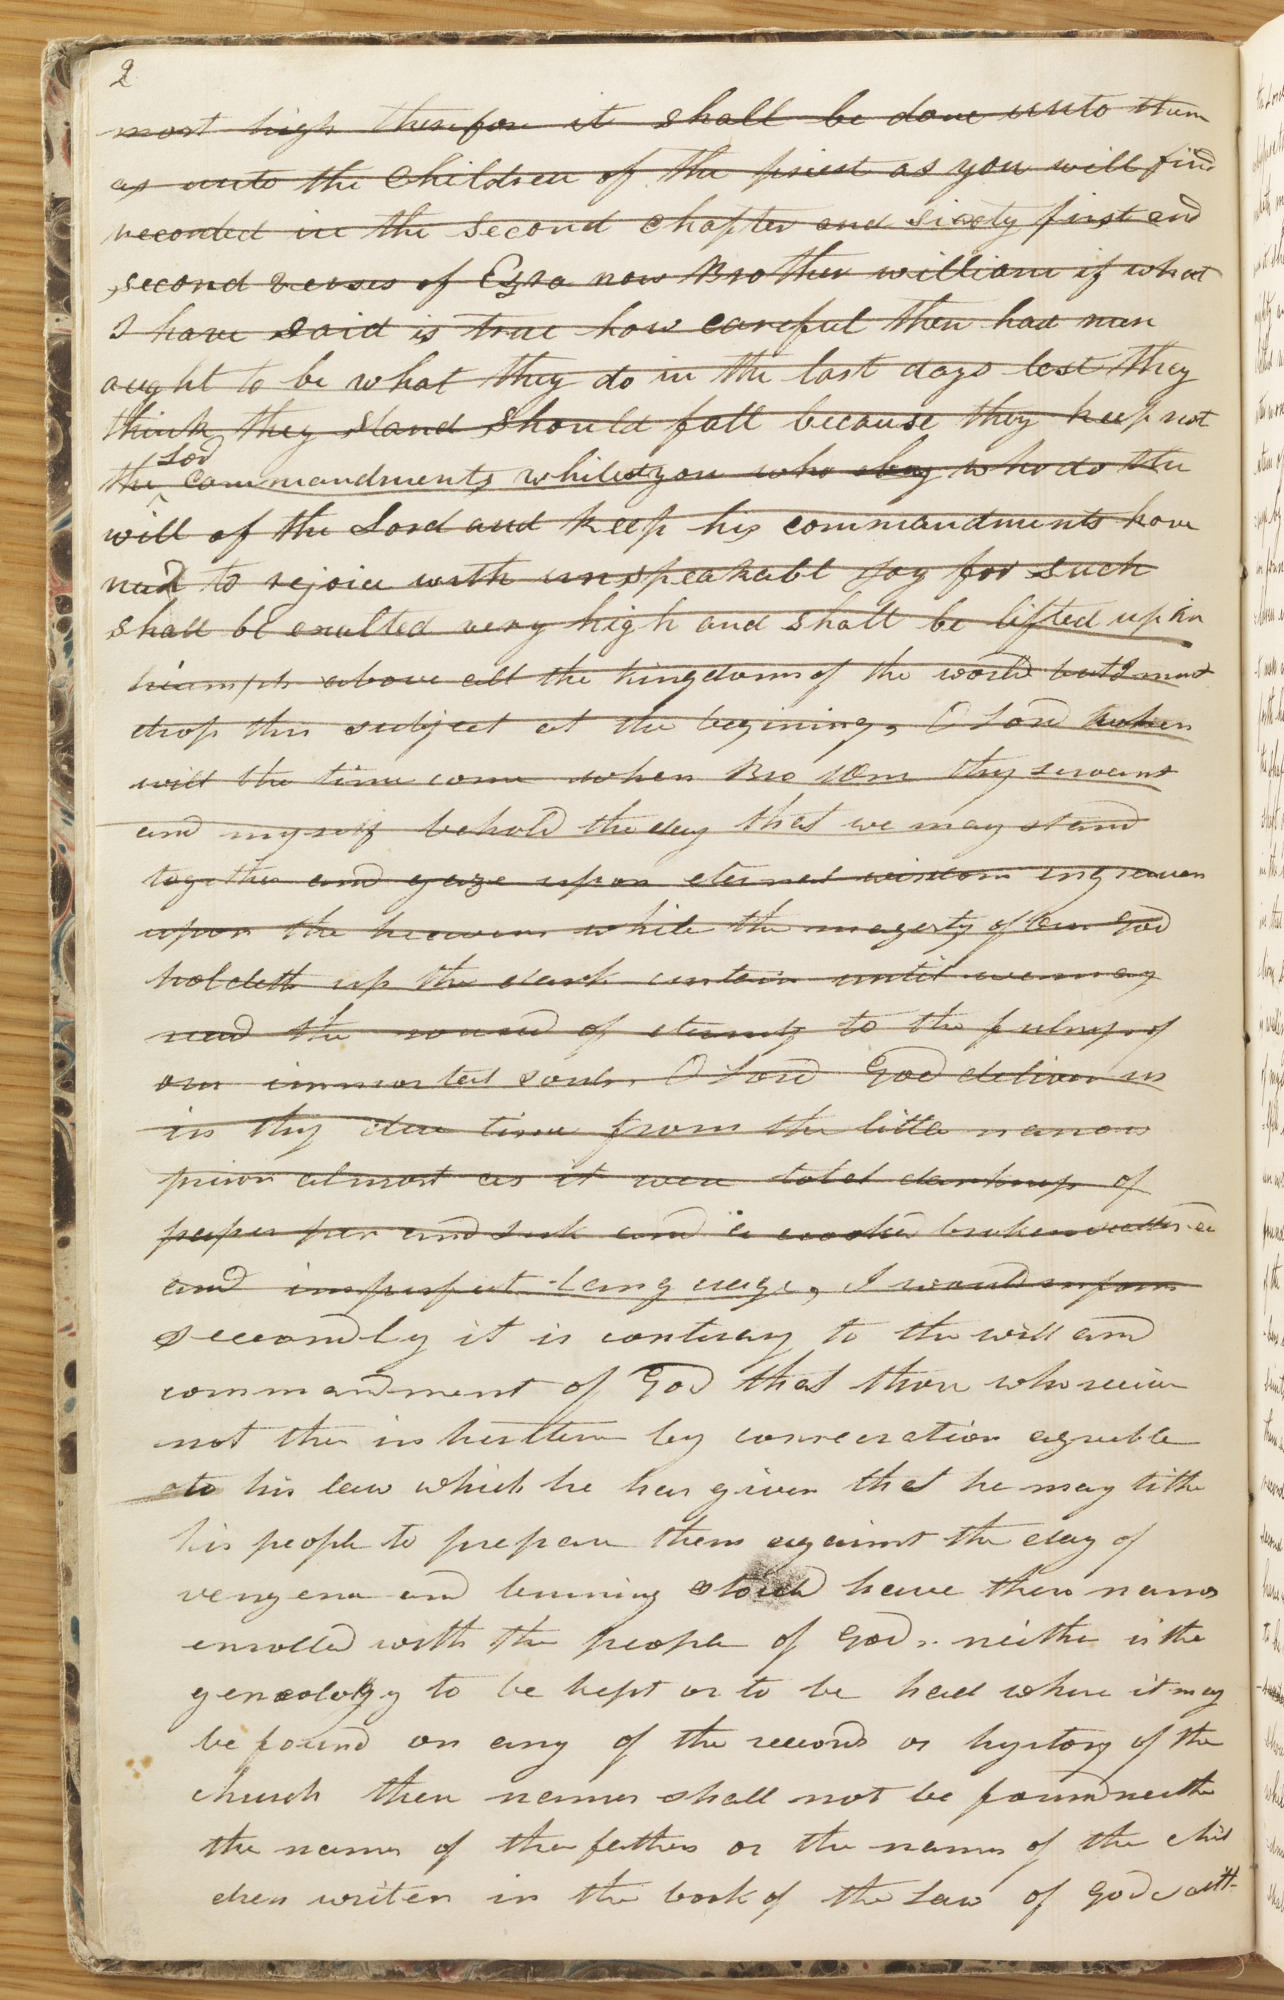 2
most high therefore it shall be done unto them
as unto the children of the priest as you will find
recorded in the second chapter and sixty first and
second verses of Ezra now Brother william if what
I have said is true how careful then had men
aught to be what they do in the last days lest they
think they stand should fall because they keep not
the Lord commandments whilest you who obey who do the
will of the Lord and keep his commandments have
need to rejoice with unspeakable joy for such
shall be exalted very high and shall be lifted up in
triumph above all the kingdoms of the world but I must
drop this subject at the begining, O Lord when
will the time come when Bro Wm thy servent
and myself behold the day that we may stand
together and gaze upon eternal wisdom engraven
upon the heavens while the magesty of our God
holdeth up the dark curtain until we may
read the round of eternity to the fulness of
our immortal souls O Lord God deliver us
in thy due time from the little narrow
prison almost as it were totel darkness of
paper pen and Ink and a crooked broken scattered
and imperfect Language, I would inform
secondly it is contrary to the will and
commandment of God that those who receive
not the inheritence by consecration agreeble
to his law which he has given that he may tithe
his people to prepare them against the day of
vengence and burning should have there names
enrolled with the people of God. neithe is the
geneology to be kept or to be had where it may
be found on any of the records or hystory of the
church there names shall not be found neithe
the names of ther fathers or the names of the chil
dren writen in the book of the Law of God saith